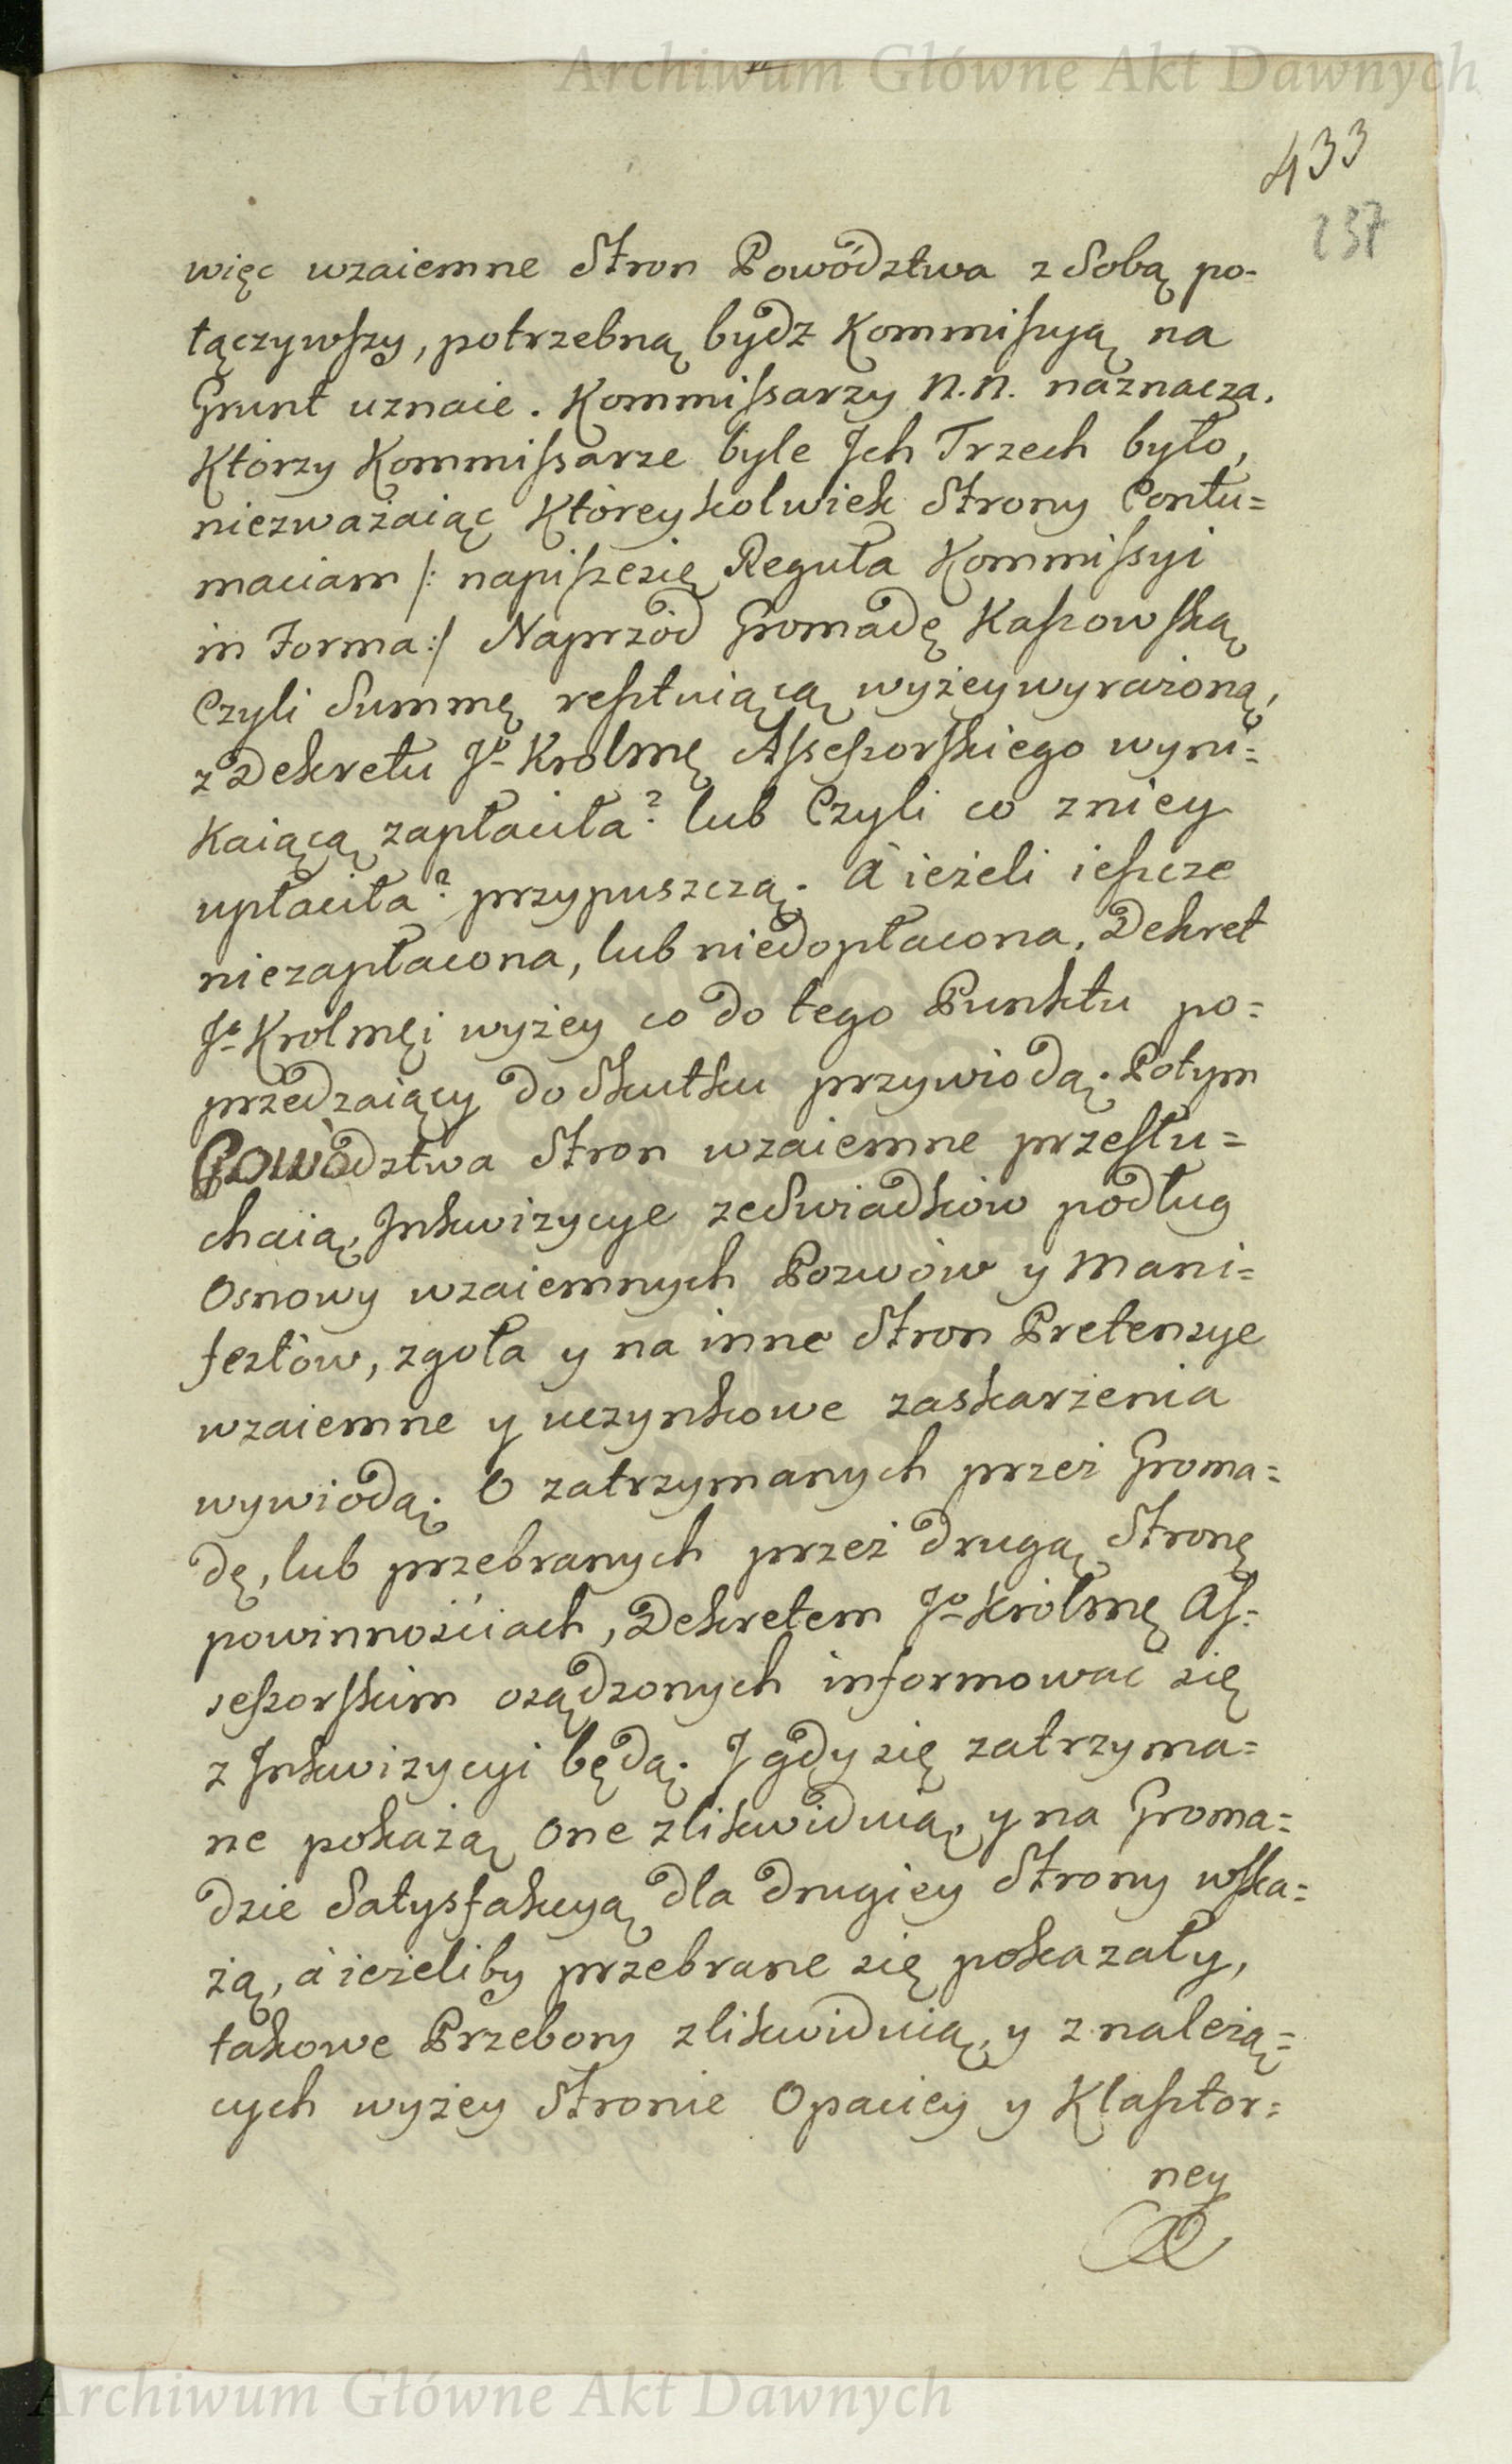 Archiwum Główne Akt Dawnych
433
237
więc wzaiemne Stron Powództwa z Sobą po-
łączywszy, potrzebną bydz Kommissyją na
Grunt uznaie. Kommissarzy N.N. naznacza.
Którzy Kommissarze byle Jch Trzech było,
niezważaiąc Któreykolwiek Strony Contu=
maciam /: napiszesię Reguła Kommissyi
in Forma:/ Naprzód Gromadę Kaszowską
Czyli Summę resztuiącą wyżeywyrażoną,
z Dekretu Jo Krolmę Assessorskiego wyni=
Kaiącą zapłaciła? lub Czyli co zniey
upłaciła? przypuszczą. A ieżeli ieszcze
niezapłacona, lub niedopłacona, Dekret
Jo Krolmęi wyżey co do tego Punktu po=
przedzaiący do Skutku przywiodą. Potym
Powództwa Stron wzaiemne przesłu=
chaią, Jnkwizycye zeświadków podług
Osnowy wzaiemnych Pozwów y Mani=
festów, zgoła y na inne Stron Pretensye
wzaiemne y uczynkowe zaskarżenia
wywiodą. O zatrzymanych przez Groma=
dę, lub przebranych przez drugą Stronę
powinnościach, Dekretem Jo Królmę As=
sessorskim osądzonych informować się
z Jnkwizycyi będą. J gdy się zatrzyma=
ne pokażą One zlikwiduią, y na Groma=
dzie Satysfakcyą dla drugiey Strony wska=
żą, a ieżeliby przebrane się pokazały,
takowe Przebory zlikwiduią, y z należą=
cych wyżey Stronie Opaciey y Klasztor=
ney
Archiwum Główne Akt Dawnych